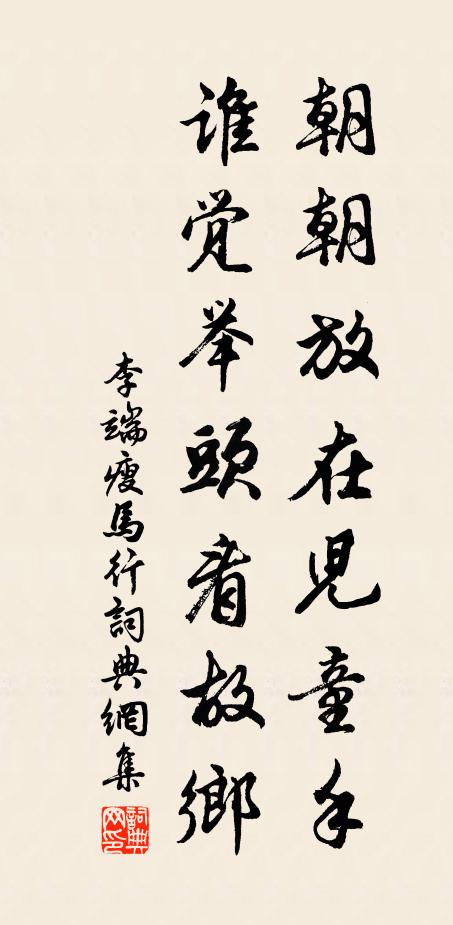 朝朝放在児童手
谁觉举頭看故鄉
李端瘦馬行詞典網集
詞典网印